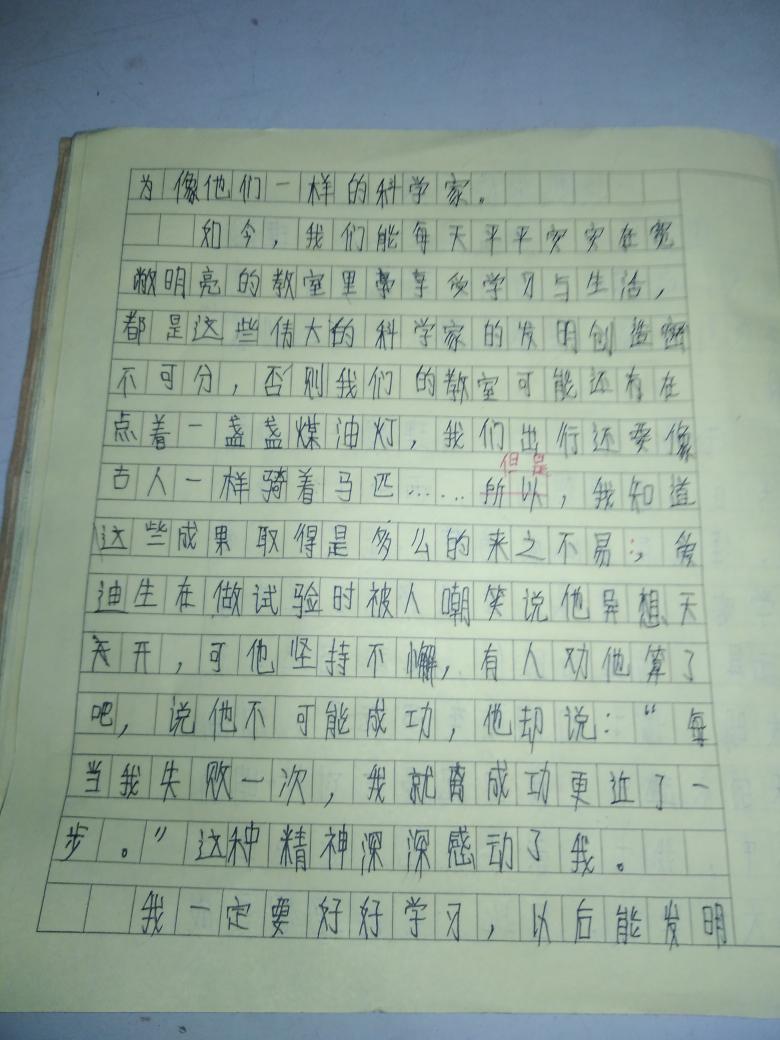 为像他们一样的科学家。
如今，我们能每天平平实实在宽
敞明亮的教室里享受学习与生活，
都是这些伟大的科学家的发明创造密
不可分，否则我们的教室可能还有在
点着一盏盏煤油灯，我们出行还要像
但是
古人一样骑着马匹……所以，我知道
这些成果取得是多么的来之不易；爱
迪生在做试验时被人嘲笑说他异想天
开，可他坚持不懈，有人劝他算了
吧，说他不可能成功，他却说：“每
当我失败一次，我就离成功更近了一
步。”这种精神深深感动了我。
我一定要好好学习，以后能发明